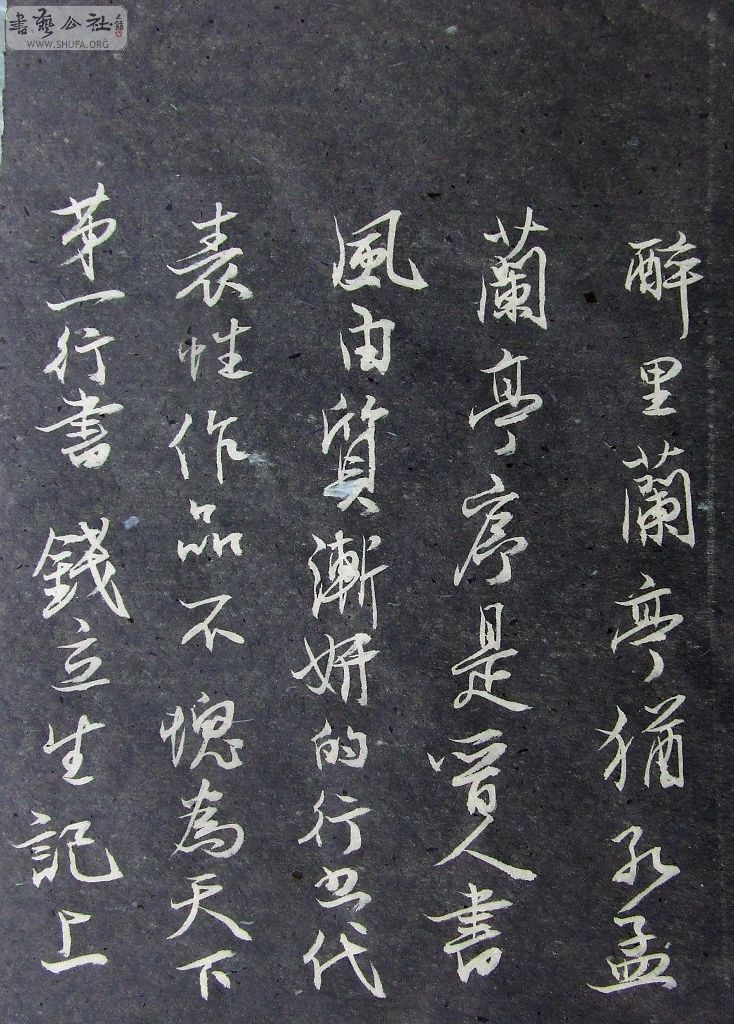 書藝公社
WWW.SHUFA.ORG
醉里蘭亭猶孔孟
蘭亭序是晉人書
風由質漸妍的行书代
表性作品不愧為天下
第一行書 錢立生記上